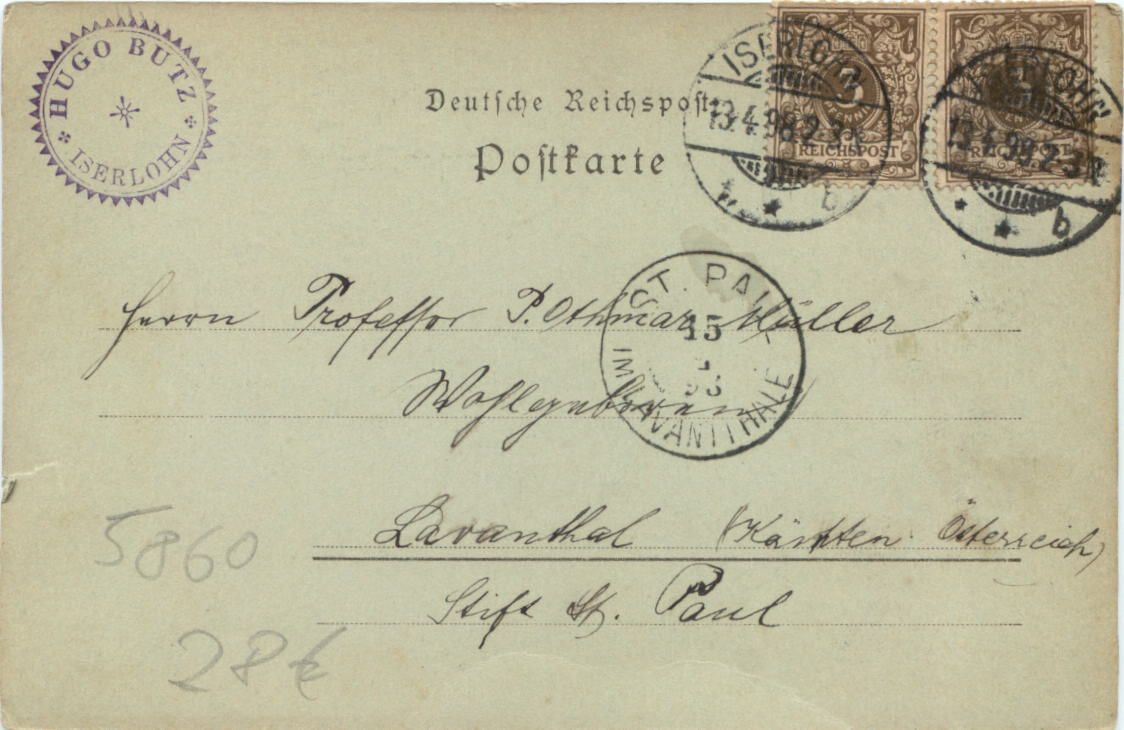 HUGO BUTZ
ISERLOHN
Deutsche Reichspost
Postkarte
ISERLOHN
13.4.98.2-3N.
b
3
REICHSPOST
ISERLOHN
13.4.98.2-3N.
b
REICHSPOST
ST. PAUL
15
4
98
IM LAVANTTHALE
Herrn Professor P. Othmar Müller
Wohlgeboren
Lavanthal (Kärnten Österreich)
Stift St. Paul
5860
28€